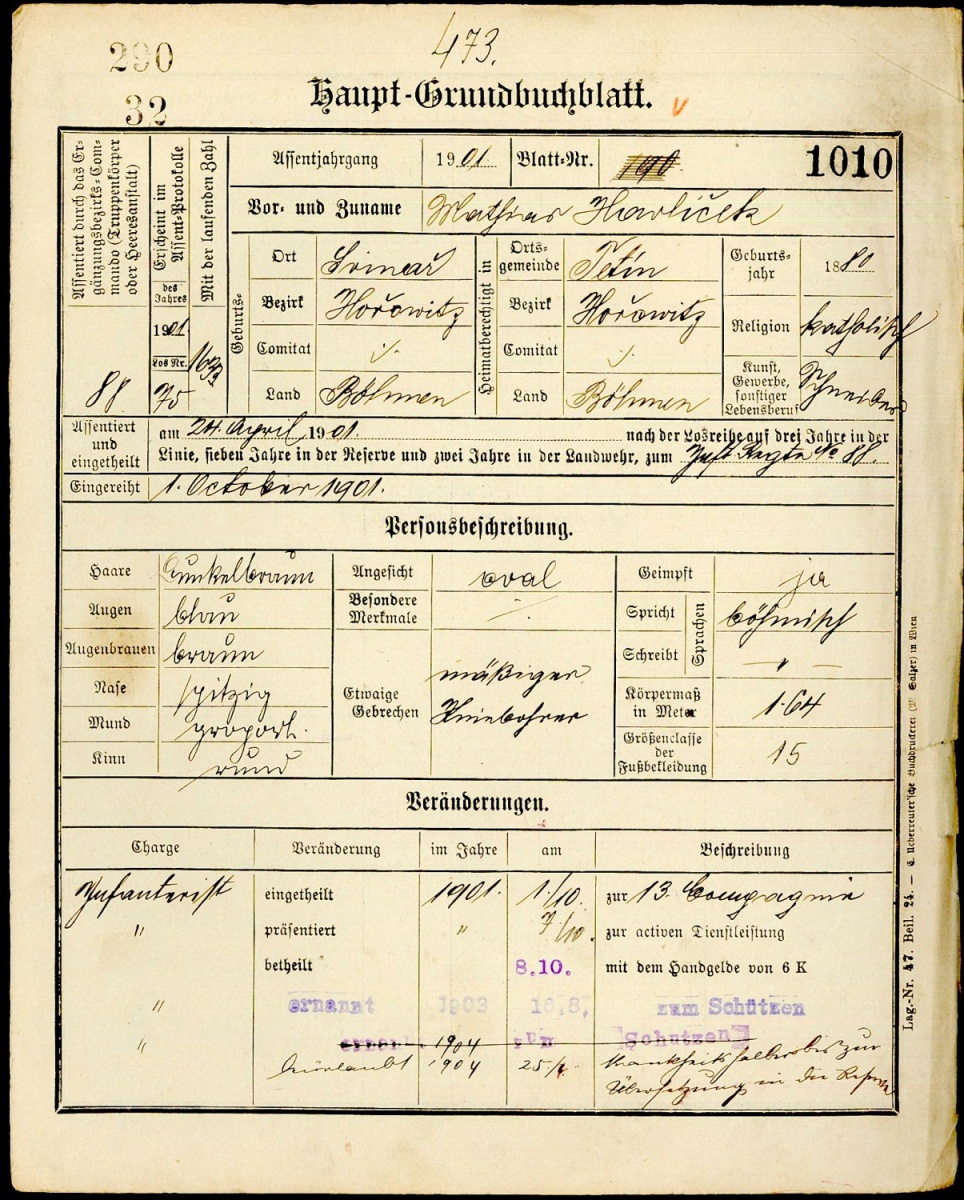 290
473.
32
Haupt-Grundbuchblatt.
Assentiert durch das Er-
gänzungsbezirks-Com-
mando (Truppenkörper
oder Heeresanstalt)
88
Erscheint im
Assent-Protokolle
des
Jahres
1901
Los Nr.
75
Mit der laufenden Zahl
Assentjahrgang 1901. Blatt-Nr. 190 1010
Vor- und Zuname Mathias Havlíček
Geburts-
Ort
Bezirk Hořowitz
Comitat ·/.
Land Böhmen
Heimatberechtigt in
Orts-
gemeinde Tetín
Bezirk Hořowitz
Comitat ·/.
Land Böhmen
Geburts-
jahr 1880
Religion katholisch
Kunst,
Gewerbe,
sonstiger
Lebensberuf Schneider
Assentiert
und
eingetheilt
am 24. April 1901. nach der Losreihe auf drei Jahre in der
Linie, sieben Jahre in der Reserve und zwei Jahre in der Landwehr, zum Inft. Regte No 88.
Eingereiht 1. October 1901.
Personsbeschreibung.
Haare dunkelbraun
Augen blau
Augenbrauen braun
Nase spitzig
Mund proport.
Kinn rund
Angesicht oval
Besondere
Merkmale ·/.
Etwaige
Gebrechen
mäßiger
Kniebohrer
Geimpft ja
Spricht böhmisch
Schreibt — " —
Sprachen
Körpermaß
in Meter 1·64
Größenclasse
der
Fußbekleidung 15
Veränderungen.
Charge Veränderung im Jahre am Beschreibung
Infanterist eingetheilt 1901. 1/10. zur 13. Compagnie
" präsentiert " 7/10. zur activen Dienstleistung
betheilt 8.10. mit dem Handgelde von 6 K
" ernannt 1903 18.8. zum Schützen
" ernannt 1904 zum Schützen
beurlaubt 1904 krankheitshalber bis zur
Übersetzung in die Reserve
Lag.-Nr. 47. Beil. 24. — C. Ueberreuter'sche Buchdruckerei (M. Salzer) in Wien